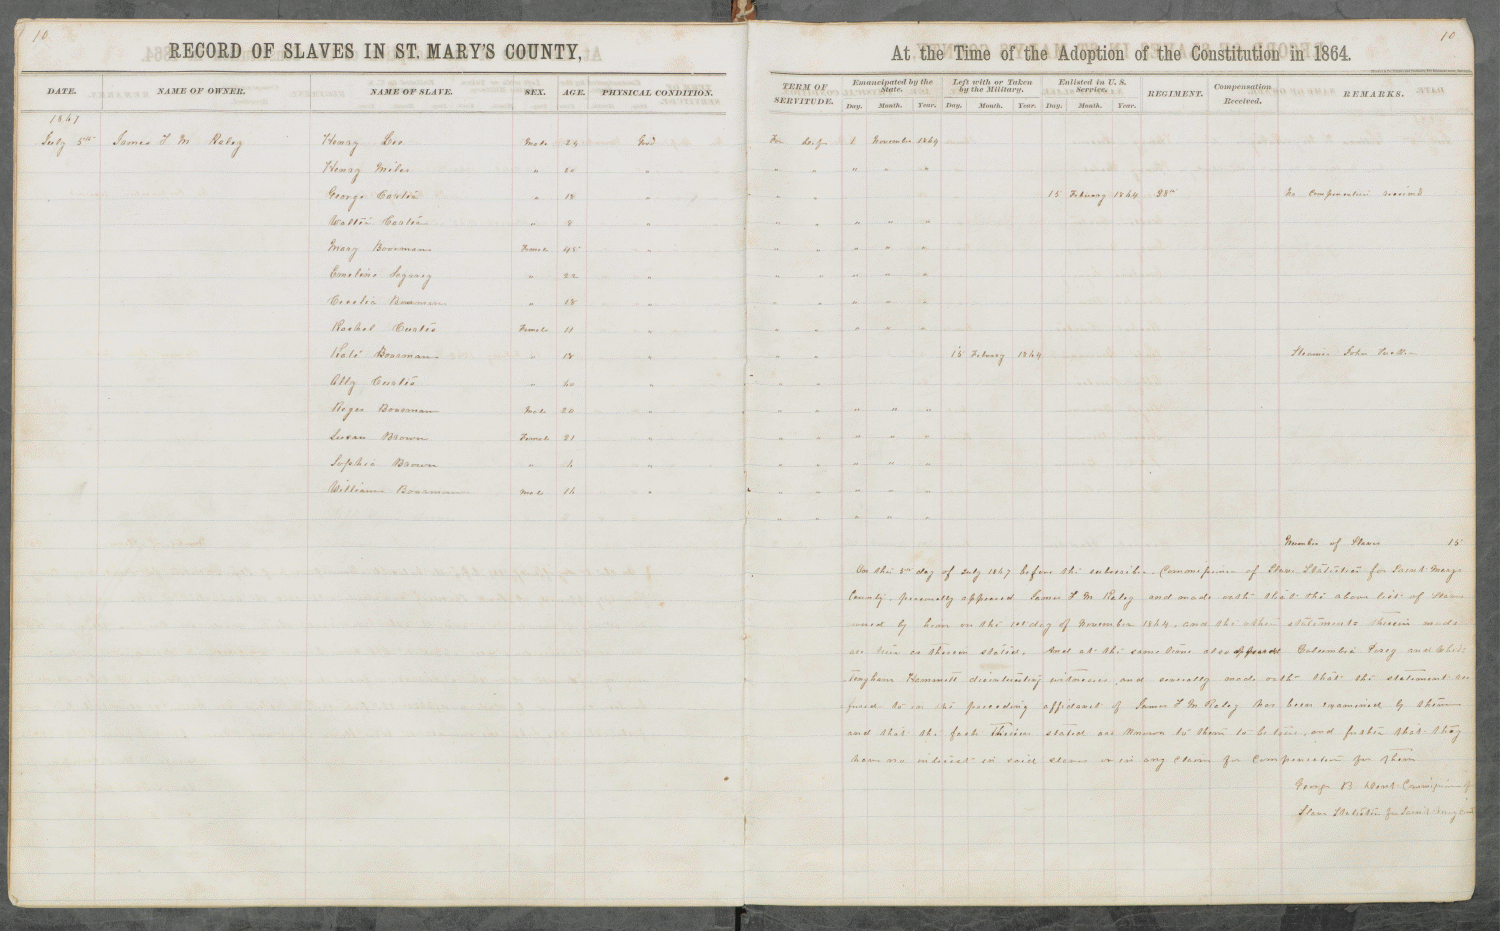 10
10
RECORD OF SLAVES IN ST. MARY'S COUNTY,
At the Time of the Adoption of the Constitution in 1864.
DATE. NAME OF OWNER. NAME OF SLAVE. SEX. AGE. PHYSICAL CONDITION.
TERM OF SERVITUDE. Emancipated by the State. Left with or Taken by the Military. Enlisted in U. S. Service. REGIMENT. Compensation Received. REMARKS.
Day. Month. Year. Day. Month. Year. Day. Month. Year.
1867
July 5th James F M Raley Henry Lee Male 24 Good For Life 1 November 1864
Henry Miles " 20 " " " " " "
George Curtis " 18 " " " 15 February 1864 38th No Compensation received
Walter Curtis " 8 " " " " " "
Mary Boorman Female 45 " " " " " "
Emeline " 22 " " " " " "
Cecelia Boorman " 18 " " " " " "
Rachel Curtis Female 11 " " " " " "
Kate Boorman " 18 " " " 15 February 1864 Steamer John
Curtis " " " "
Roger Boorman Male 20 " " " " " "
Susan Brown Female 21 " " " " " "
Sophia Brown " " " " " " "
William Boorman Male " " " " " "
" " " " "
Number of Slaves 15
On this 5th day of July 1867 before the subscriber, Commissioner of Slave Statistics for Saint Marys
County, personally appeared James F M Raley and made oath that the above list of Slaves
owned by him on the 1st day of November 1864, and the other statements therein made
are true as therein stated. And at the same time also appeared Columbia Posey and
Hammett disinterested witnesses, and severally made oath that the statement
to in the preceding affidavit of James F M Raley has been examined by them
and that the facts therein stated are known to them to be true, and further that they
have no interest in said slaves or in any claim for Compensation for them
George B Dent Commissioner of
Slave Statistics for Saint Marys